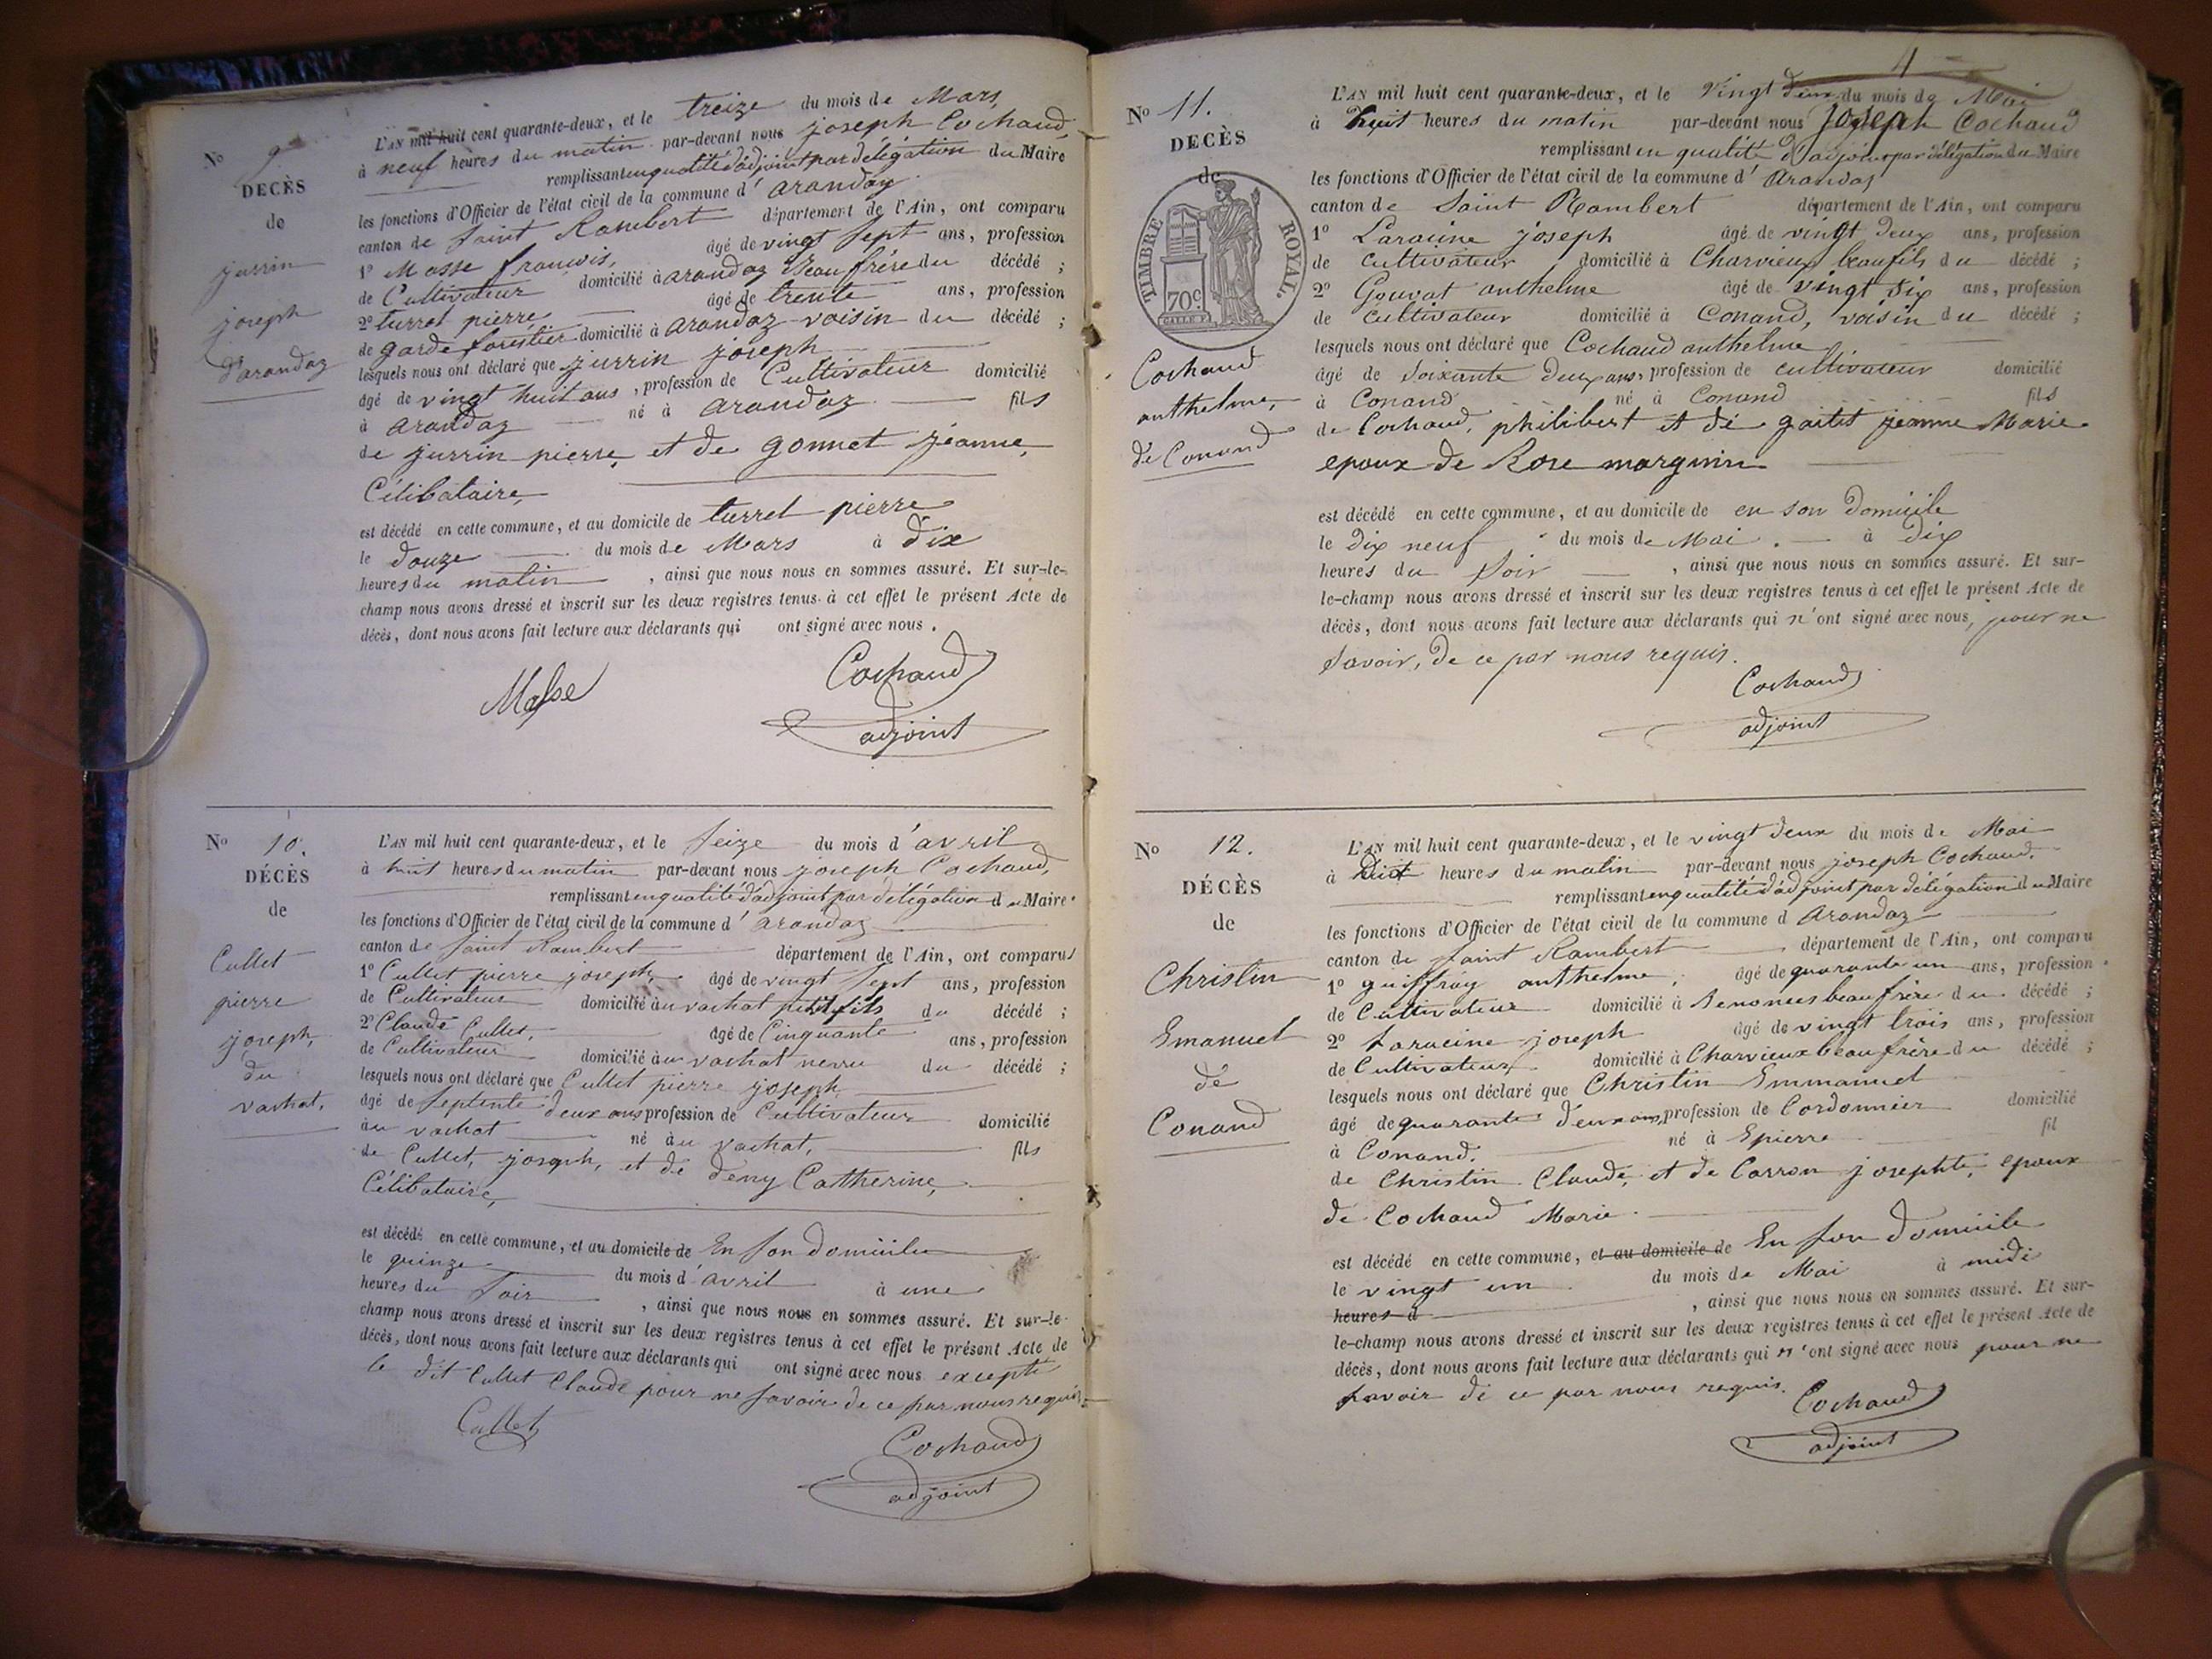 No 9
DECÈS
de
jurrin
joseph
d'arandaz
L'AN mil huit cent quarante-deux, et le treize du mois de Mars,
à neuf heures du matin par-devant nous joseph Cochaud,
remplissant en qualité d'adjoint par délégation du Maire
les fonctions d'Officier de l'état civil de la commune d' arandaz
canton de Saint Rambert département de l'Ain, ont comparu
1° Masse francois, âgé de vingt sept ans, profession
de Cultivateur domicilié à arandaz Beau frère du décédé ;
2° turrel pierre âgé de trente ans, profession
de garde forestier domicilié à arandaz voisin du décédé ;
lesquels nous ont déclaré que jurrin joseph
âgé de vingt huit ans, profession de Cultivateur domicilié
à arandaz né à arandaz fils
de jurrin pierre, et de gonnet jeanne,
Célibataire,
est décédé en cette commune, et au domicile de turrel pierre
le douze du mois de Mars à dix
heures du matin, ainsi que nous nous en sommes assuré. Et sur-le-
champ nous avons dressé et inscrit sur les deux registres tenus à cet effet le présent Acte de
décès, dont nous avons fait lecture aux déclarants qui ont signé avec nous.
Masse Cochaud
adjoint
No 10.
DÉCÈS
de
Cullet
pierre
joseph,
du
vachat,
L'AN mil huit cent quarante-deux, et le seize du mois d'avril
à huit heures du matin par-devant nous joseph Cochaud,
remplissant en qualité d'adjoint par délégation du Maire
les fonctions d'Officier de l'état civil de la commune d' arandaz
canton de Saint Rambert département de l'Ain, ont comparus
1° Cullet pierre joseph, âgé de vingt sept ans, profession
de Cultivateur domicilié au vachat petit fils du décédé ;
2° Claude Cullet, âgé de Cinquante ans, profession
de Cultivateur domicilié au vachat neveu du décédé ;
lesquels nous ont déclaré que Cullet pierre joseph
âgé de septente deux ans profession de Cultivateur domicilié
au vachat né au vachat, fils
de Cullet, joseph, et de deny Catherine,
Célibataire,
est décédé en cette commune, et au domicile de En son domicile
le quinze du mois d'avril à une
heures du soir, ainsi que nous nous en sommes assuré. Et sur-le-
champ nous avons dressé et inscrit sur les deux registres tenus à cet effet le présent Acte de
décès, dont nous avons fait lecture aux déclarants qui ont signé avec nous excepté
le dit Cullet Claude pour ne savoir de ce par nous requis
Cullet Cochaud
adjoint
4
No 11.
DECÈS
de
TIMBRE ROYAL.
70c
Cochaud
anthelme,
de Conand
L'AN mil huit cent quarante-deux, et le Vingt deux du mois de Mai
à huit heures du matin par-devant nous joseph Cochaud
remplissant en qualité d'adjoint par délégation du Maire
les fonctions d'Officier de l'état civil de la commune d' Arandas
canton de Saint Rambert département de l'Ain, ont comparu
1° Laracine joseph âgé de vingt deux ans, profession
de cultivateur domicilié à Charvieux beaufils du décédé ;
2° Gouvat anthelme âgé de vingt six ans, profession
de cultivateur domicilié à Conand, voisin du décédé ;
lesquels nous ont déclaré que Cochaud anthelme
âgé de soixante deux ans, profession de cultivateur domicilié
à Conand né à Conand fils
de Cochaud, philibert et de jeanne Marie
epoux de Rose
est décédé en cette commune, et au domicile de en son domicile
le dix neuf du mois de Mai. à dix
heures du soir, ainsi que nous nous en sommes assuré. Et sur-
le-champ nous avons dressé et inscrit sur les deux registres tenus à cet effet le présent Acte de
décès, dont nous avons fait lecture aux déclarants qui n'ont signé avec nous, pour ne
savoir, de ce par nous requis.
Cochaud
adjoint
No 12.
DÉCÈS
de
Christin
Emanuel
de
Conand
L'AN mil huit cent quarante-deux, et le vingt deux du mois de Mai
à huit heures du matin par-devant nous joseph Cochaud,
remplissant en qualité d'adjoint par délégation du Maire
les fonctions d'Officier de l'état civil de la commune d Arandaz
canton de Saint Rambert département de l'Ain, ont comparu
1° guiffray anthelme, âgé de quarante un ans, profession
de Cultivateur domicilié à beau frère du décédé ;
2° Laracine joseph âgé de vingt trois ans, profession
de Cultivateur domicilié à Charvieux beau frère du décédé ;
lesquels nous ont déclaré que Christin Emmanuel
âgé de quarante deux ans, profession de Cordonnier domicilié
à Conand. né à Epierre fil
de Christin Claude, et de Carron josephte, epoux
de Cochaud Marie.
est décédé en cette commune, et au domicile de En son domicile
le vingt un du mois de Mai à midi
heures d, ainsi que nous nous en sommes assuré. Et sur-
le-champ nous avons dressé et inscrit sur les deux registres tenus à cet effet le présent Acte de
décès, dont nous avons fait lecture aux déclarants qui n'ont signé avec nous pour ne
savoir de ce par nous requis.
Cochaud
adjoint